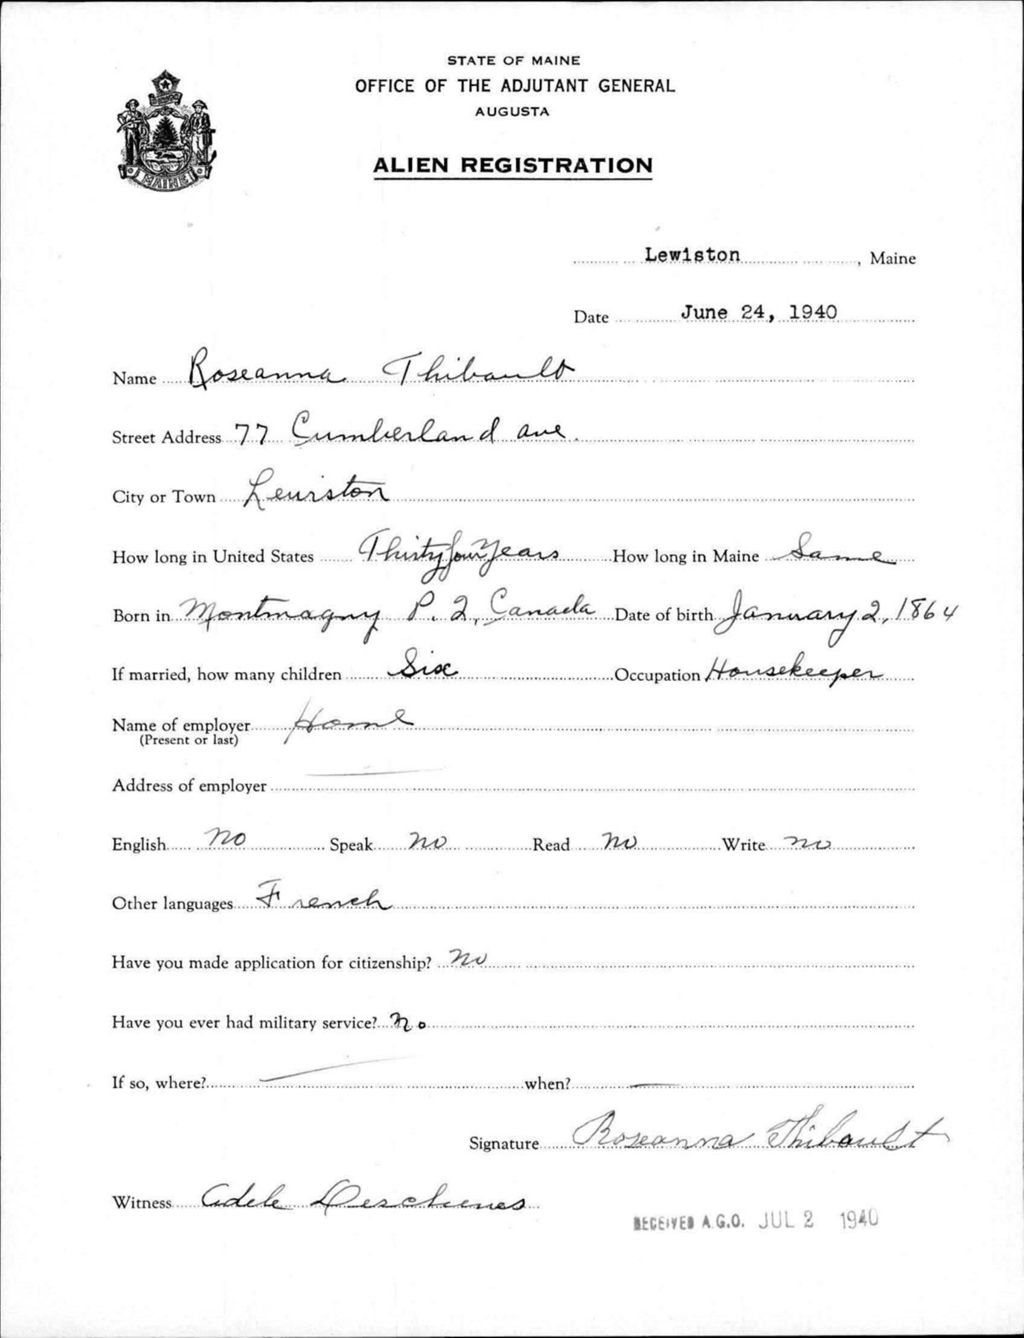 STATE OF MAINE
OFFICE OF THE ADJUTANT GENERAL
AUGUSTA
MAINE
ALIEN REGISTRATION
Lewiston, Maine
Date June 24, 1940
Name Roseanna Thibault
Street Address 77 Cumberland ave.
City or Town Lewiston
How long in United States Thirty four Years How long in Maine Same
Born in Montmagny P. Q, Canada Date of birth January 2, 1864
If married, how many children Six Occupation Housekeeper
Name of employer Home
(Present or last)
Address of employer
English No Speak No Read No Write no
Other languages French
Have you made application for citizenship? No
Have you ever had military service? No
If so, where? when?
Signature Roseanna Thibault
Witness Adele Deschenes
RECEIVED A.G.O. JUL 2 1940